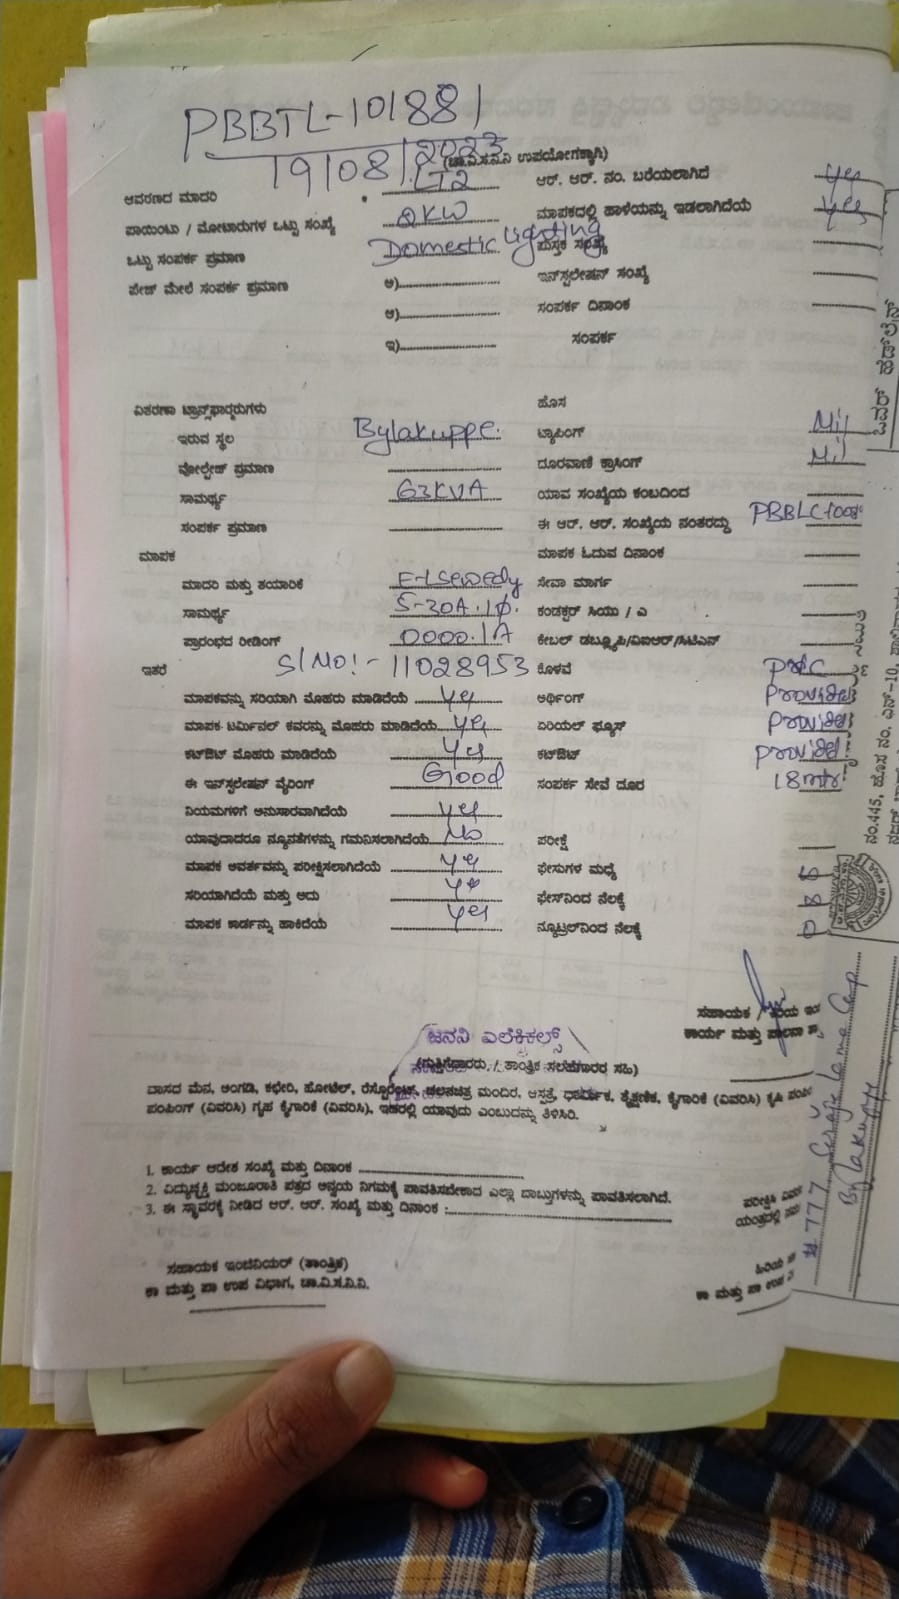 PBBTL-10188
19/08/2023
(ಚಾ.ವಿ.ಸ.ನಿ.ನಿ ಉಪಯೋಗಕ್ಕಾಗಿ)
ಆವರಣದ ಮಾದರಿ LT2 ಆರ್. ಆರ್. ನಂ. ಬರೆಯಲಾಗಿದೆ yes
ಪಾಯಿಂಟು / ಮೋಟಾರುಗಳ ಒಟ್ಟು ಸಂಖ್ಯೆ 2KW ಮಾಪಕದಲ್ಲಿ ಹಾಳೆಯನ್ನು ಇಡಲಾಗಿದೆಯೆ yes
ಒಟ್ಟು ಸಂಪರ್ಕ ಪ್ರಮಾಣ Domestic Lighting ಪುಸ್ತಕ ಸಂಖ್ಯೆ
ಪೇಜ್ ಮೇಲೆ ಸಂಪರ್ಕ ಪ್ರಮಾಣ ಅ) ಇನ್‌ಸ್ಟಲೇಷನ್ ಸಂಖ್ಯೆ
ಆ) ಸಂಪರ್ಕ ದಿನಾಂಕ
ಇ) ಸಂಪರ್ಕ
ವಿತರಣಾ ಟ್ರಾನ್ಸ್‌ಫಾರ್ಮರುಗಳು ಹೊಸ
ಇರುವ ಸ್ಥಲ Bylakuppe. ಟ್ಯಾಪಿಂಗ್ Nil
ವೋಲ್ಟೇಜ್ ಪ್ರಮಾಣ ದೂರವಾಣಿ ಕ್ರಾಸಿಂಗ್ Nil
ಸಾಮರ್ಥ್ಯ 63KVA ಯಾವ ಸಂಖ್ಯೆಯ ಕಂಬದಿಂದ
ಸಂಪರ್ಕ ಪ್ರಮಾಣ ಈ ಆರ್. ಆರ್. ಸಂಖ್ಯೆಯ ನಂತರದ್ದು
ಮಾಪಕ ಮಾಪಕ ಓದುವ ದಿನಾಂಕ
ಮಾದರಿ ಮತ್ತು ತಯಾರಿಕೆ E-lsewedy ಸೇವಾ ಮಾರ್ಗ
ಸಾಮರ್ಥ್ಯ 5-30A.1φ. ಕಂಡಕ್ಟರ್ ಸಿಯು / ಎ
ಪ್ರಾರಂಭದ ರೀಡಿಂಗ್ 0000.1A ಕೇಬಲ್ ಡಬ್ಲ್ಯೂಪಿ/ವಿಐಆರ್/ಸಿಟಿಎಸ್
ಇತರೆ Sl No:- 11028953 ಕೊಳವೆ pvc
ಮಾಪಕವನ್ನು ಸರಿಯಾಗಿ ಮೊಹರು ಮಾಡಿದೆಯೆ yes ಅರ್ಥಿಂಗ್ Provided
ಮಾಪಕ ಟರ್ಮಿನಲ್ ಕವರನ್ನು ಮೊಹರು ಮಾಡಿದೆಯೆ yes ಏರಿಯಲ್ ಫ್ಯೂಸ್ Provided
ಕಟ್‌ಔಟ್ ಮೊಹರು ಮಾಡಿದೆಯೆ yes ಕಟ್‌ಔಟ್ provided
ಈ ಇನ್‌ಸ್ಟಲೇಷನ್ ವೈರಿಂಗ್ Good ಸಂಪರ್ಕ ಸೇವೆ ದೂರ 18mtr
ನಿಯಮಗಳಿಗೆ ಅನುಸಾರವಾಗಿದೆಯೆ yes
ಯಾವುದಾದರೂ ನ್ಯೂನತೆಗಳನ್ನು ಗಮನಿಸಲಾಗಿದೆಯೆ No ಪರೀಕ್ಷೆ
ಮಾಪಕ ಆವರ್ತವನ್ನು ಪರೀಕ್ಷಿಸಲಾಗಿದೆಯೆ yes ಫೇಸುಗಳ ಮಧ್ಯೆ
ಸರಿಯಾಗಿದೆಯೆ ಮತ್ತು ಅದು yes ಫೇಸ್‌ನಿಂದ ನೆಲಕ್ಕೆ
ಮಾಪಕ ಕಾರ್ಡನ್ನು ಹಾಕಿದೆಯೆ yes ನ್ಯೂಟ್ರಲ್‌ನಿಂದ ನೆಲಕ್ಕೆ
ಸಹಾಯಕ
ಜನನಿ ಎಲೆಕ್ಟ್ರಿಕಲ್ಸ್ ಕಾರ್ಯ ಮತ್ತು ಪಾಲನಾ
(ಗುತ್ತಿಗೆದಾರರು / ತಾಂತ್ರಿಕ ಸಲಹೆಗಾರರ ಸಹಿ)
ವಾಸದ ಮನೆ, ಅಂಗಡಿ, ಕಛೇರಿ, ಹೋಟೆಲ್, ರೆಸ್ಟೋರೆಂಟ್, ಚಲನಚಿತ್ರ ಮಂದಿರ, ಆಸ್ಪತ್ರೆ, ಧಾರ್ಮಿಕ, ಶೈಕ್ಷಣಿಕ, ಕೈಗಾರಿಕೆ (ವಿವರಿಸಿ) ಕೃಷಿ
ಪಂಪಿಂಗ್ (ವಿವರಿಸಿ) ಗೃಹ ಕೈಗಾರಿಕೆ (ವಿವರಿಸಿ), ಇದರಲ್ಲಿ ಯಾವುದು ಎಂಬುದನ್ನು ತಿಳಿಸಿರಿ.
1. ಕಾರ್ಯ ಆದೇಶ ಸಂಖ್ಯೆ ಮತ್ತು ದಿನಾಂಕ
2. ವಿದ್ಯುಚ್ಛಕ್ತಿ ಮಂಜೂರಾತಿ ಪತ್ರದ ಅನ್ವಯ ನಿಗಮಕ್ಕೆ ಪಾವತಿಸಬೇಕಾದ ಎಲ್ಲಾ ಬಾಬ್ತುಗಳನ್ನು ಪಾವತಿಸಲಾಗಿದೆ.
3. ಈ ಸ್ಥಾವರಕ್ಕೆ ನೀಡಿದ ಆರ್. ಆರ್. ಸಂಖ್ಯೆ ಮತ್ತು ದಿನಾಂಕ :
ಸಹಾಯಕ ಇಂಜಿನಿಯರ್ (ತಾಂತ್ರಿಕ)
ಕಾ ಮತ್ತು ಪಾ ಉಪ ವಿಭಾಗ, ಚಾ.ವಿ.ಸ.ನಿ.ನಿ.
ಕಾ ಮತ್ತು ಪಾ ಉಪ
# 777
Bylakuppe